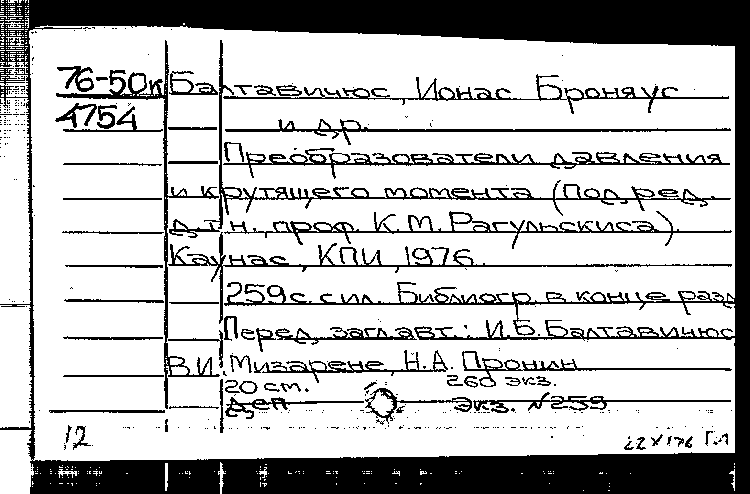 76-50к Балтавичюс, Ионас Броняус
4754 и др.
Преобразователи давления
и крутящего момента (под ред.
д.т.н., проф. К.М. Рагульскиса).
Каунас, КПИ, 1976.
259 с. с ил. Библиогр. в конце разд
Перед загл. авт.: И.Б. Балтавичюс
В.И. Мизарене, Н.А. Пронин
20 см. 260 экз.
Деп экз. №259
12